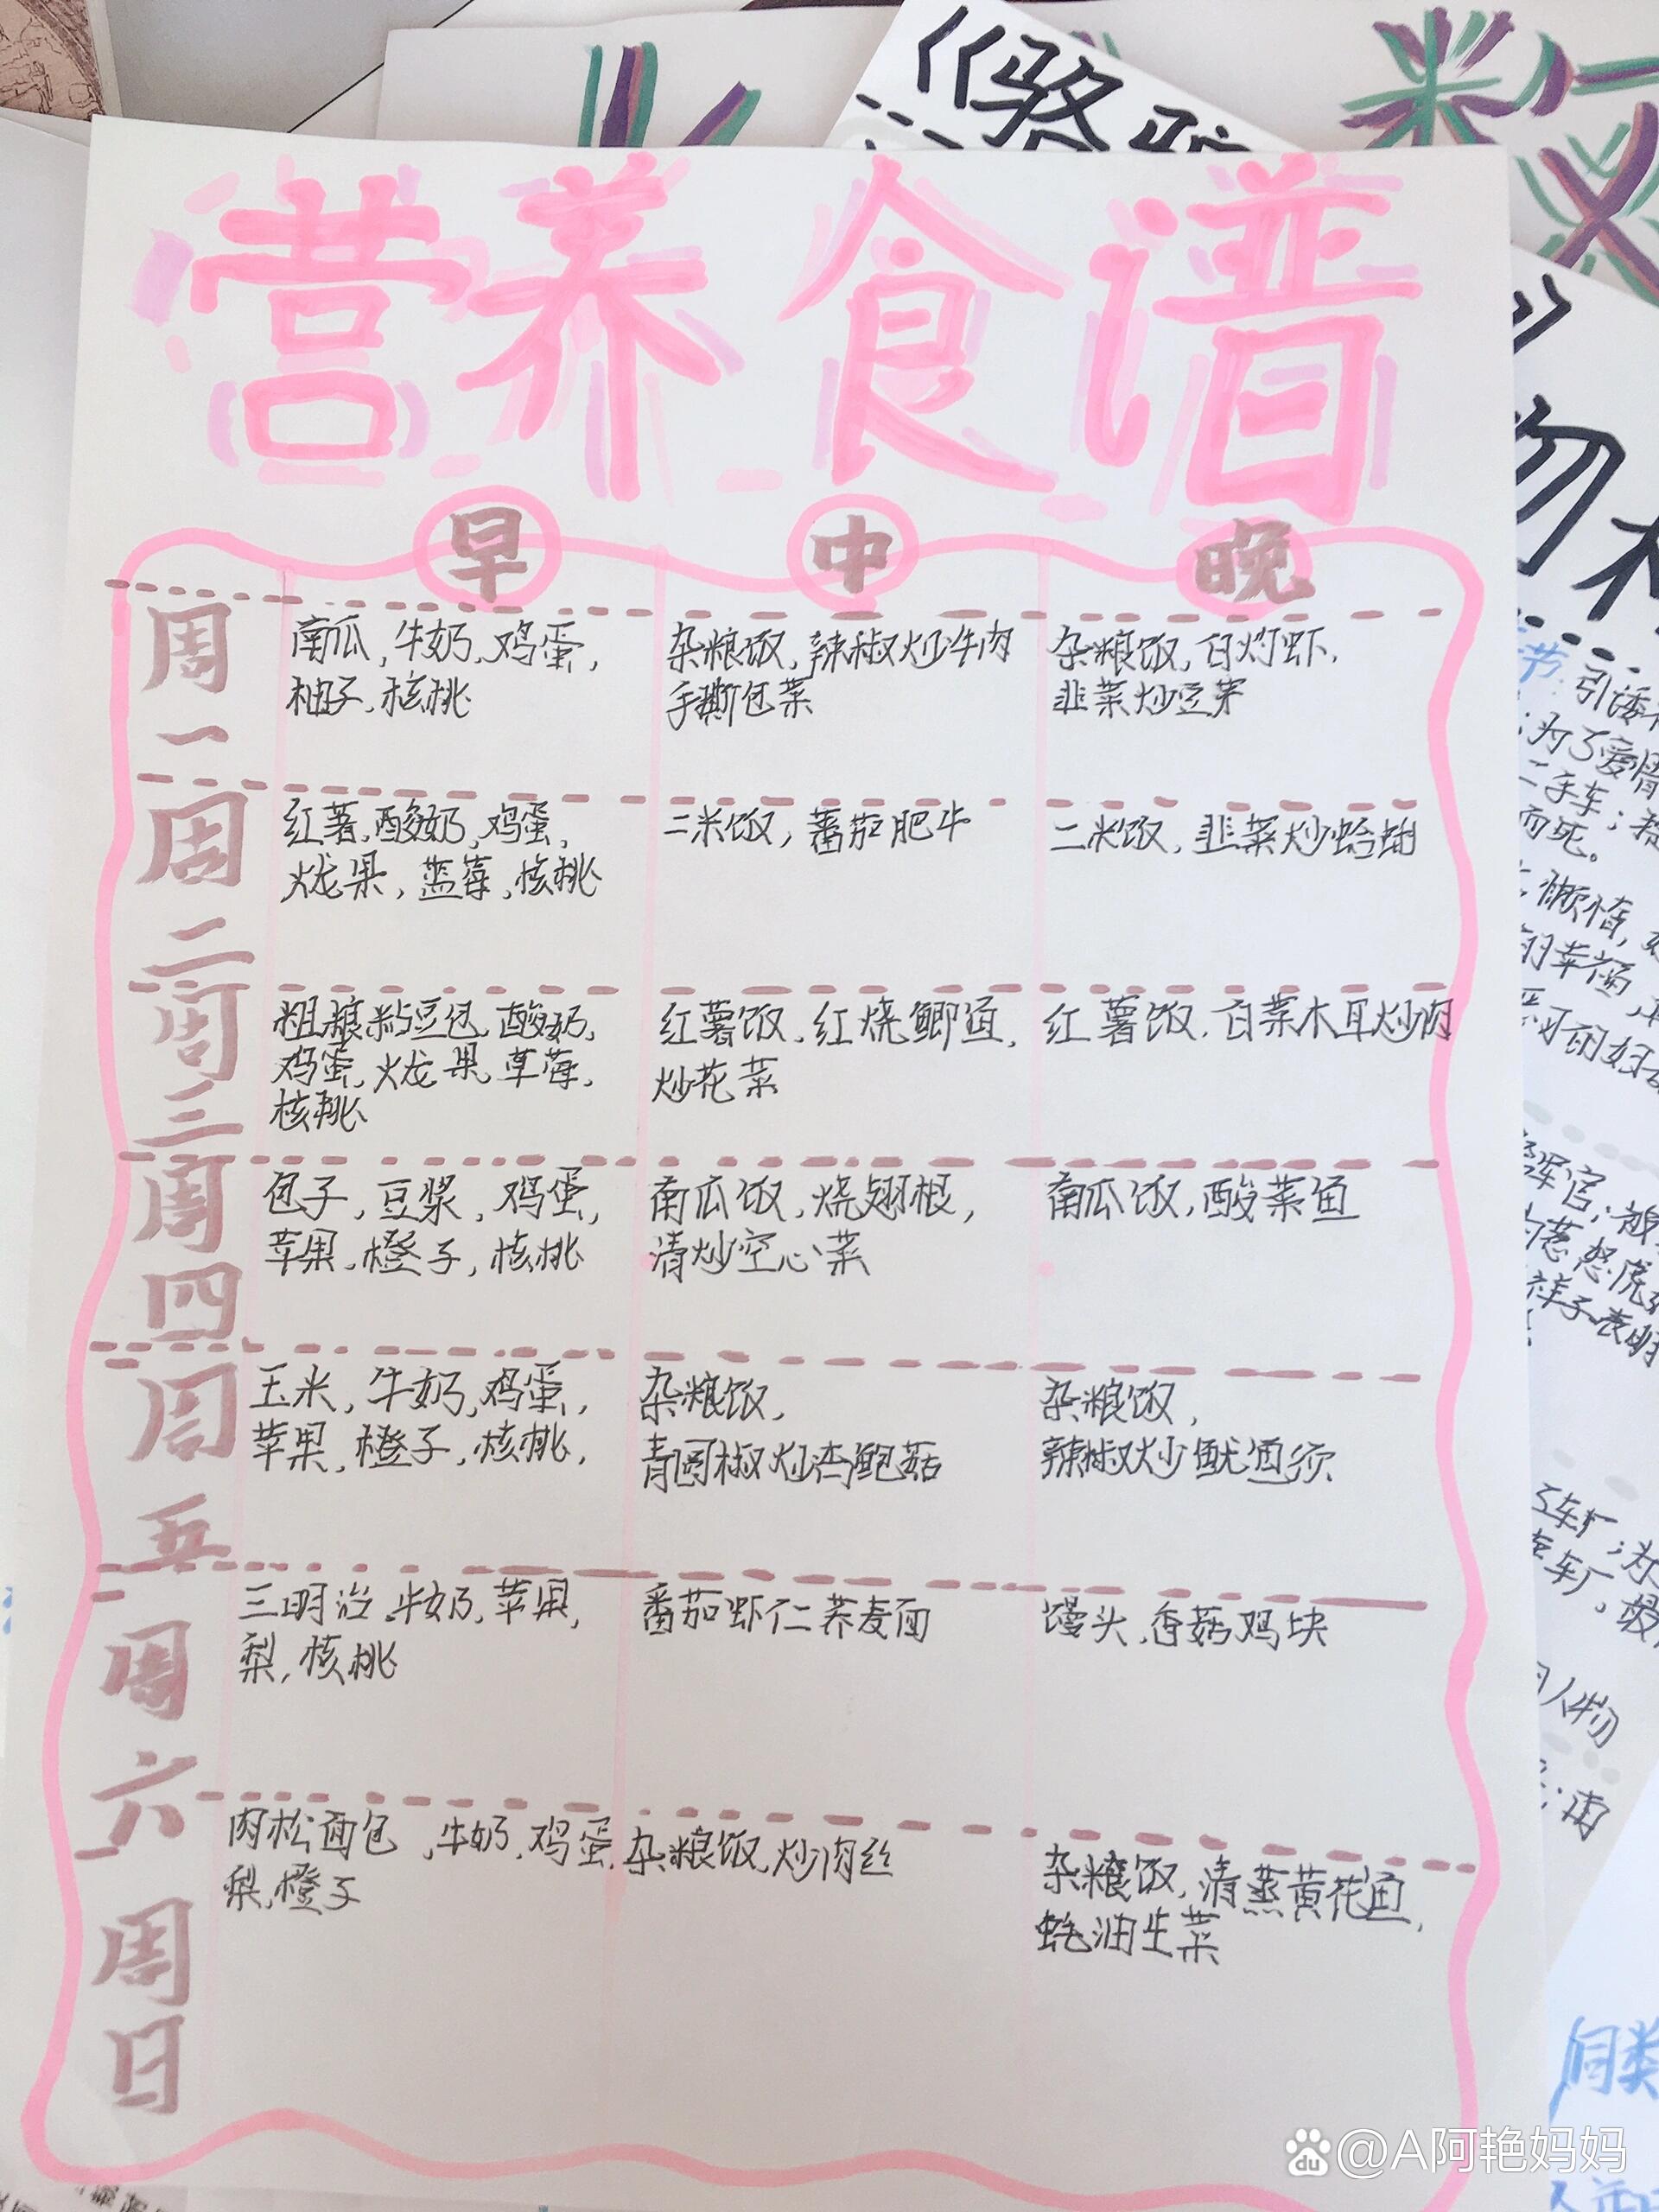 《骆
营养食谱
早 中 晚
周一
南瓜,牛奶,鸡蛋,
柚子,核桃
杂粮饭,辣椒炒牛肉
手撕包菜
杂粮饭,白灼虾,
韭菜炒豆芽
周二
红薯,酸奶,鸡蛋,
火龙果,蓝莓,核桃
二米饭,蕃茄肥牛
二米饭,韭菜炒蛤蜊
周三
粗粮粘豆包,酸奶,
鸡蛋,火龙果,草莓,
核桃
红薯饭,红烧鲫鱼,
炒花菜
红薯饭,白菜木耳炒肉
周四
包子,豆浆,鸡蛋,
苹果,橙子,核桃
南瓜饭,烧翅根,
清炒空心菜
南瓜饭,酸菜鱼
周五
玉米,牛奶,鸡蛋,
苹果,橙子,核桃,
杂粮饭,
青圆椒炒杏鲍菇
杂粮饭,
辣椒炒鱿鱼须
周六
三明治,牛奶,苹果,
梨,核桃
番茄虾仁荞麦面
馒头,香菇鸡块
周日
肉松面包,牛奶,鸡蛋,
梨,橙子
杂粮饭,炒肉丝
杂粮饭,清蒸黄花鱼,
蚝油生菜
物
节:引诱
;为了爱情
二手车;
而死。
懒惰,
的幸福,
人物
同类
@A阿艳妈妈